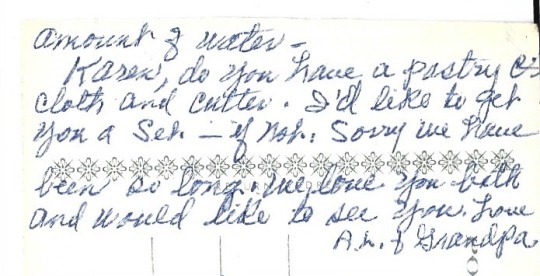 amount of water –
Karen, do you have a pastry
cloth and cutter. I'd like to get
you a set – if not. Sorry we have
been so long. we love you both
and would like to see you. Love
A. & Grandpa